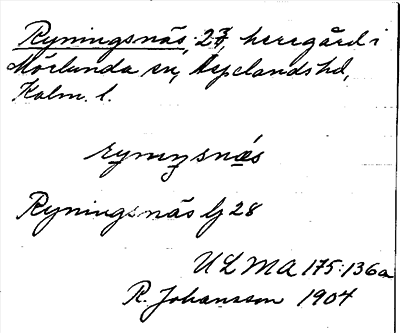 Ryningsnäs, 27, herrgård i
Mörlunda sn, Aspelands hd,
Kalm. l.
rynıŋsnäs
Ryningsnäs Gj 28
ULMA 175:136a
R. Johansson 1904